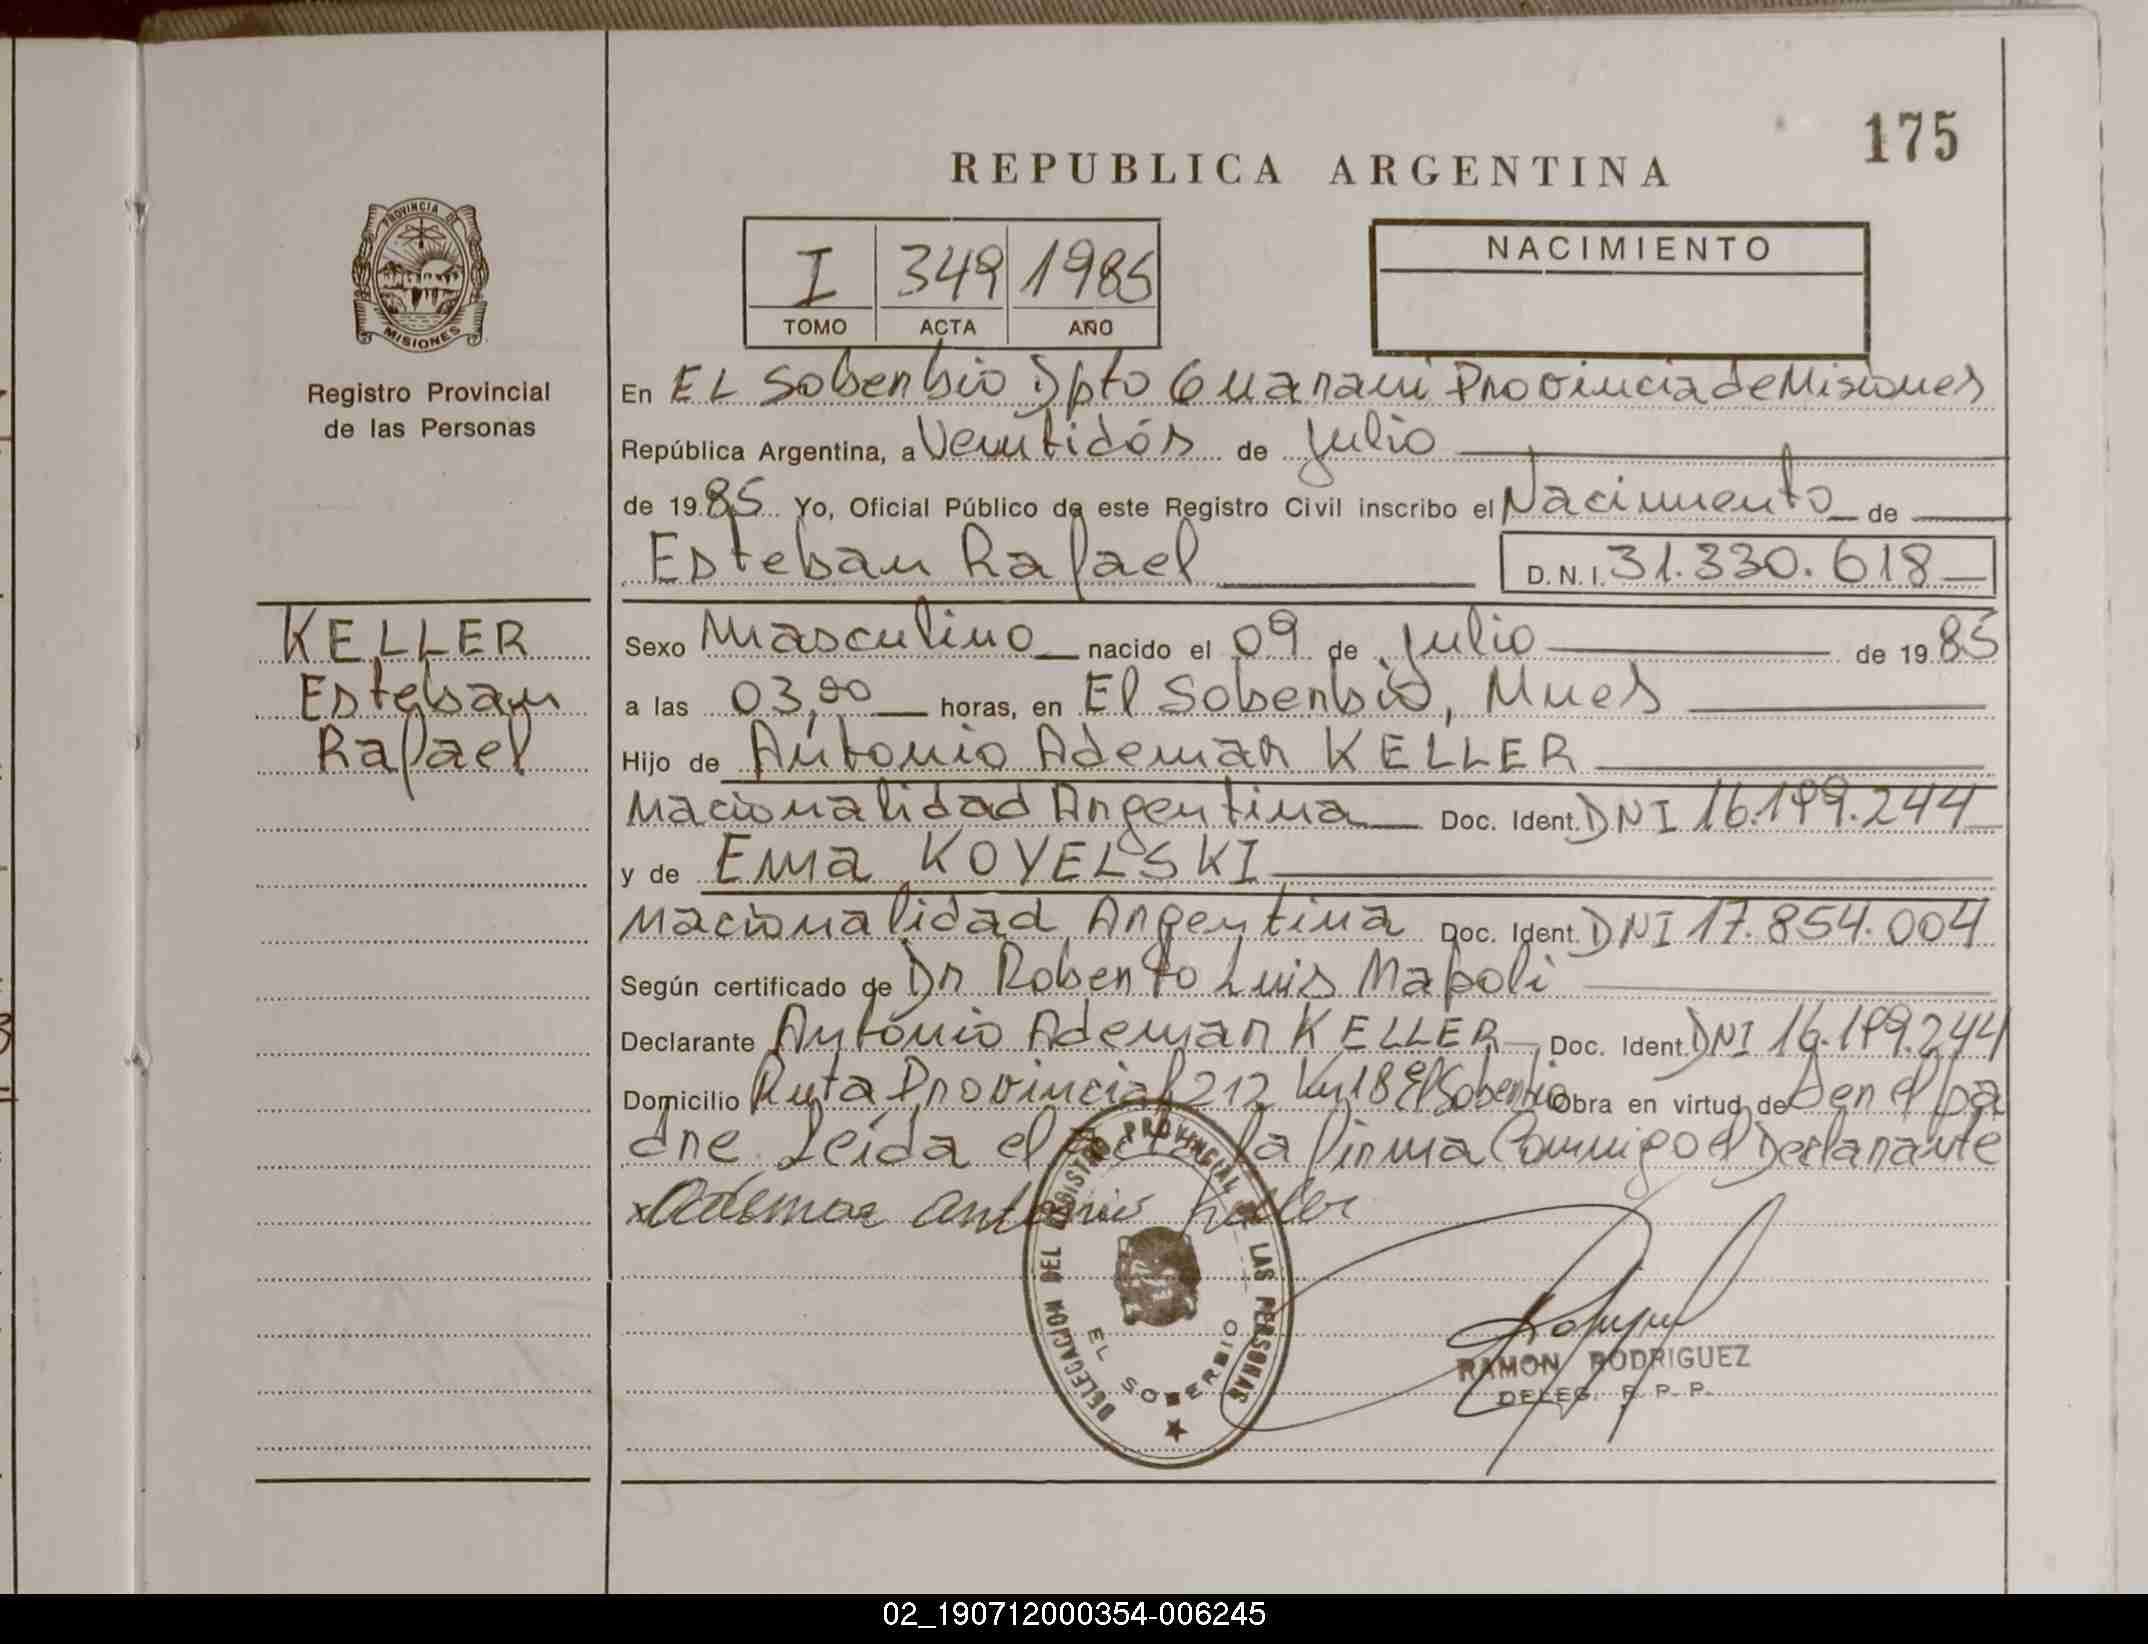 175
REPUBLICA ARGENTINA
PROVINCIA DE
MISIONES
Registro Provincial
de las Personas
I 349 1985
TOMO ACTA AÑO
NACIMIENTO
En EL Soberbio Dpto Guarani Provincia de Misiones
República Argentina, a Veintidós de Julio
de 19 85 Yo, Oficial Público de este Registro Civil inscribo el Nacimiento de
Esteban Rafael D.N.I. 31.330.618
KELLER
Esteban
Rafael
Sexo Masculino nacido el 09 de Julio de 19 85
a las 03,00 horas, en El Soberbio, Mnes
Hijo de Antonio Ademar KELLER
Nacionalidad Argentina Doc. Ident. DNI 16.199.244
y de Ema KOVELSKI
Nacionalidad Argentina Doc. Ident. DNI 17.854.004
Según certificado de Dr Roberto Luis Napoli
Declarante Antonio Ademar KELLER Doc. Ident. DNI 16.199.244
Domicilio Ruta Provincial 212 Km 18 El Soberbio Obra en virtud de Ser el pa
dre Leída el acta la firma Conmigo el Declarante
x Ademar antonio keller
DELEGACION DEL REGISTRO PROVINCIAL DE LAS PERSONAS
EL SOBERBIO
RAMON RODRIGUEZ
DELEG. R. P. P.
02_190712000354-006245